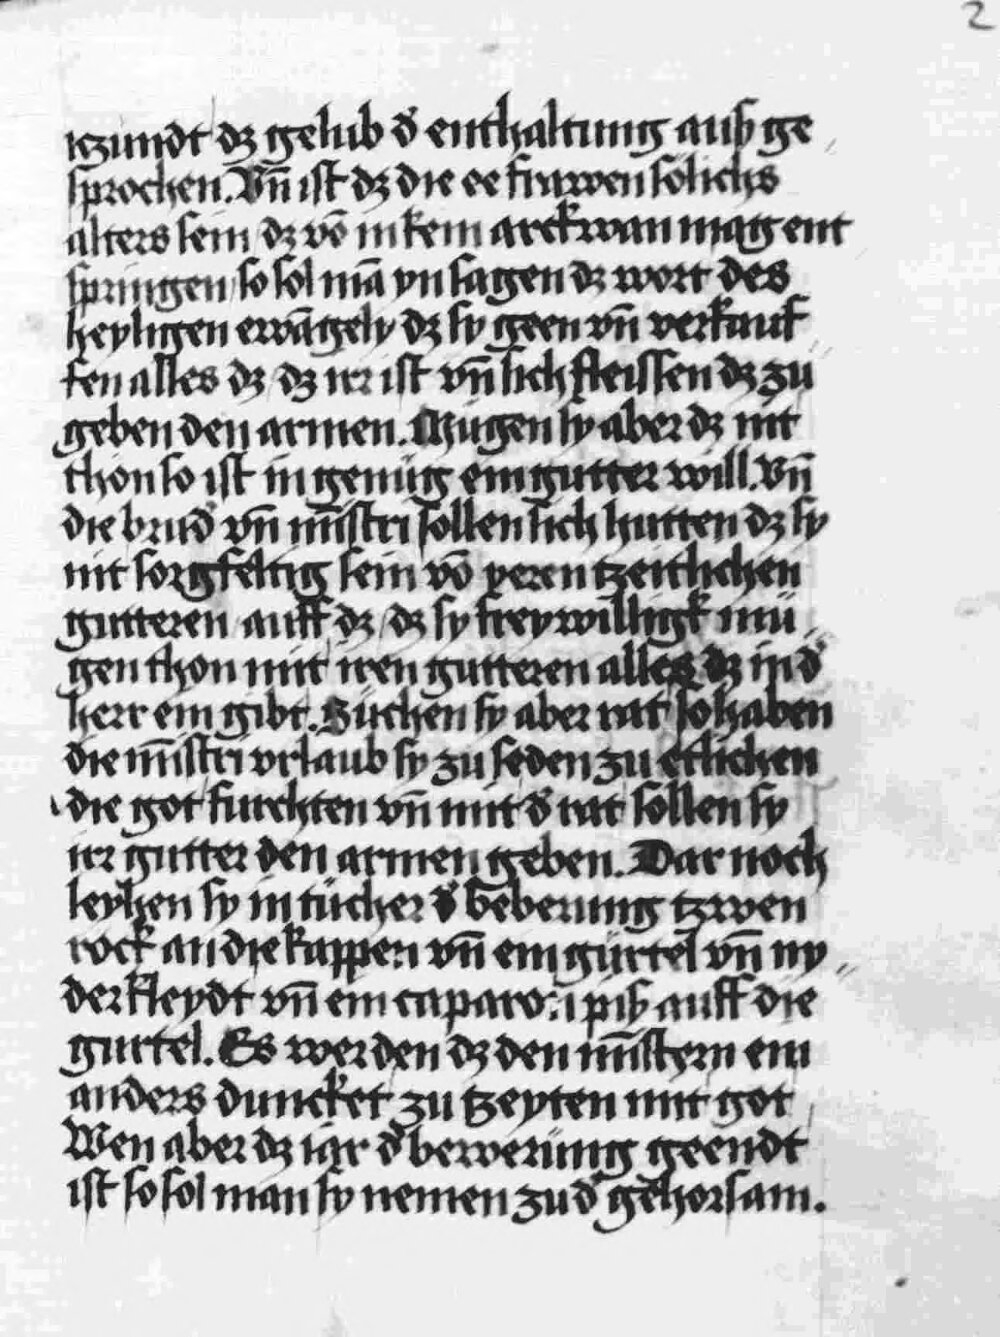 2
itzundt dz gelub d̾ enthaltung ausz ge
sprochen. Vn̄ ist dz die ee frawen sölichs
alters sein / dz vō in kein arckwan mag ent
springen / so sol mā yn sagen dz wort des
heyligen ewāgely dz sy geen vn̄ verkauf
fen alles dz / dz irr ist vn̄ sich fleissen dz zü
geben den armen. Mügen sy aber dz nit
thon so ist in genüg ein gutter will. Vn̄
die brüd̾ vn̄ mīstri sollen sich hutten dz sy
nit sorgfeltig sein vō yeren tzeitlichen
gutteren / auff dz / dz sy frey willigk mü
gen thon mit iren gutteren alles dz in d̾
herr ein gibt. Süchen sy aber rat so haben
die mīstri vrlaub sy zu seden zu etlichen
die got furchten vn̄ mit d̾ rat sollen sy
irr gutter den armen geben. Dar noch
leyhen sy in tücher d̾ beberung tzwen
röck an die kappen vn̄ ein gürtel vn̄ ny
der kleydt vn̄ ein caparo: i pisz auff die
gurtel. Es werden dz den mīstern ein
anders duncket zu tzeyten mit got
Wen aber dz iar d̾ bewerüng geendt
ist so sol man sy nemen zu d̾ gehorsam.